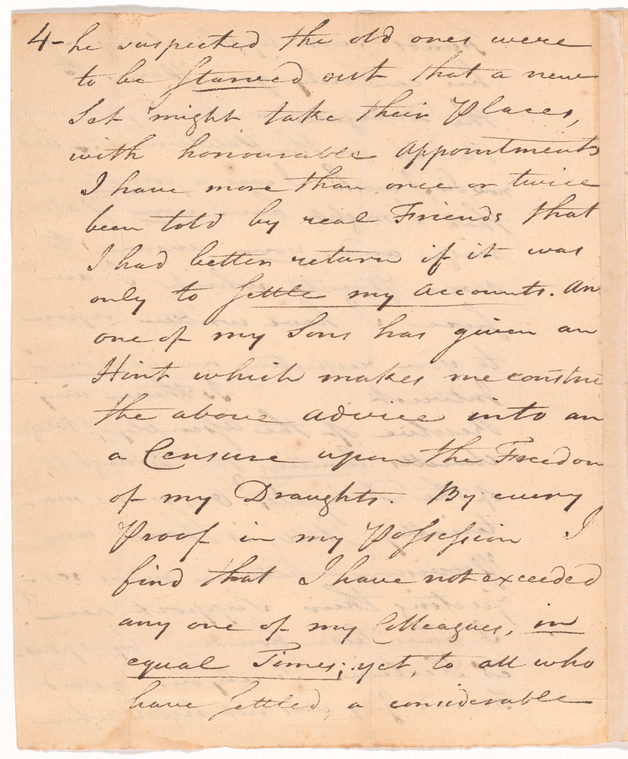 4- he suspected the old ones were
to be starved out that a new
Set might take their Places,
with honourable Appointments
I have more than once or twice
been told by real Friends that
I had better return if it was
only to settle my accounts. An
one of my Sons has given an
Hint which makes me constru
the above advice into an
a Censure upon the Freedom
of my Draughts. By every
Proof in my Possession I
find that I have not exceeded
any one of my Colleagues, in
equal Times; yet, to all who
have settled, a considerable